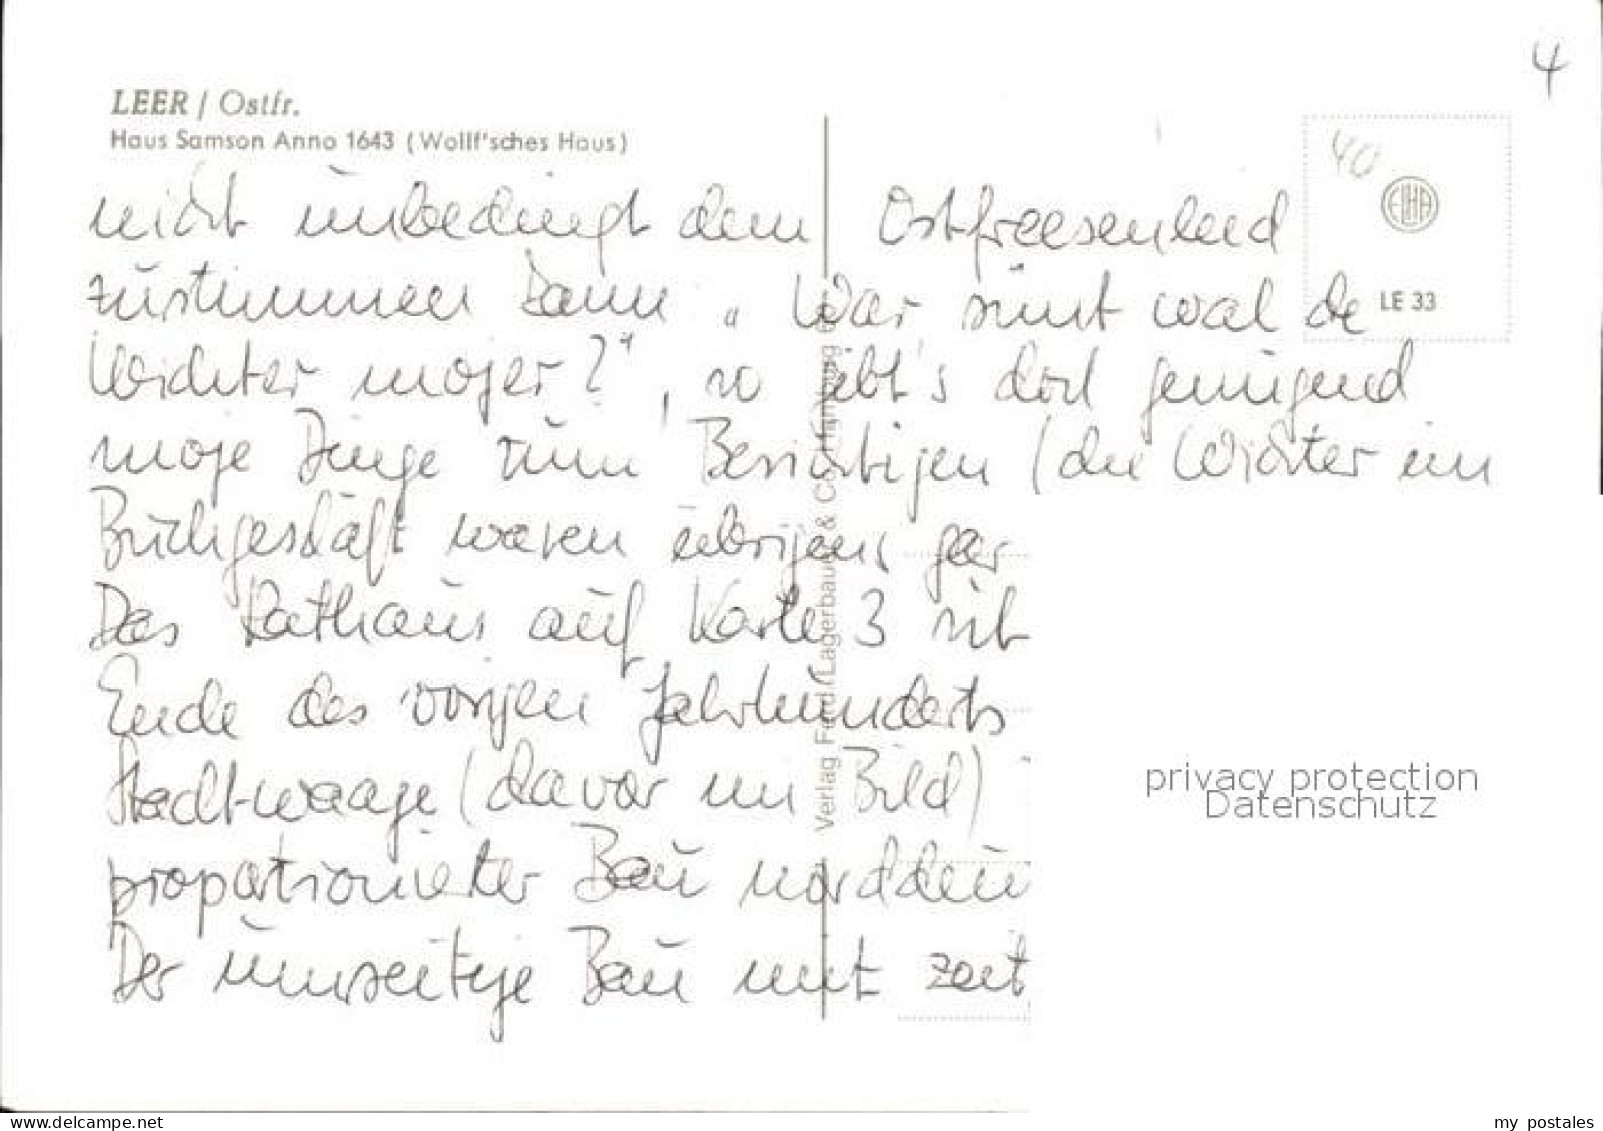 4
LEER / Ostfr.
Haus Samson Anno 1643 (Wolff'sches Haus)
40
ELHA
LE 33
nicht unbedingt dem Ostfreesenleed
zustimmen kann „War sünt wal de
Wichter mojer?", so gibt's dort genügend
moje Dinge zum Besichtigen (die Wichter im
Buchgeschäft waren übrigens gar
Das Rathaus auf Karte 3 ist
Ende des vorigen Jahrhunderts
Stadtwaage (davor im Bild)
proportionierter Bau norddeu
Der umseitige Bau mit zeit
Verlag Ferd. Lagerbauer & Co. Hamburg
privacy protection
Datenschutz
www.delcampe.net
my_postales